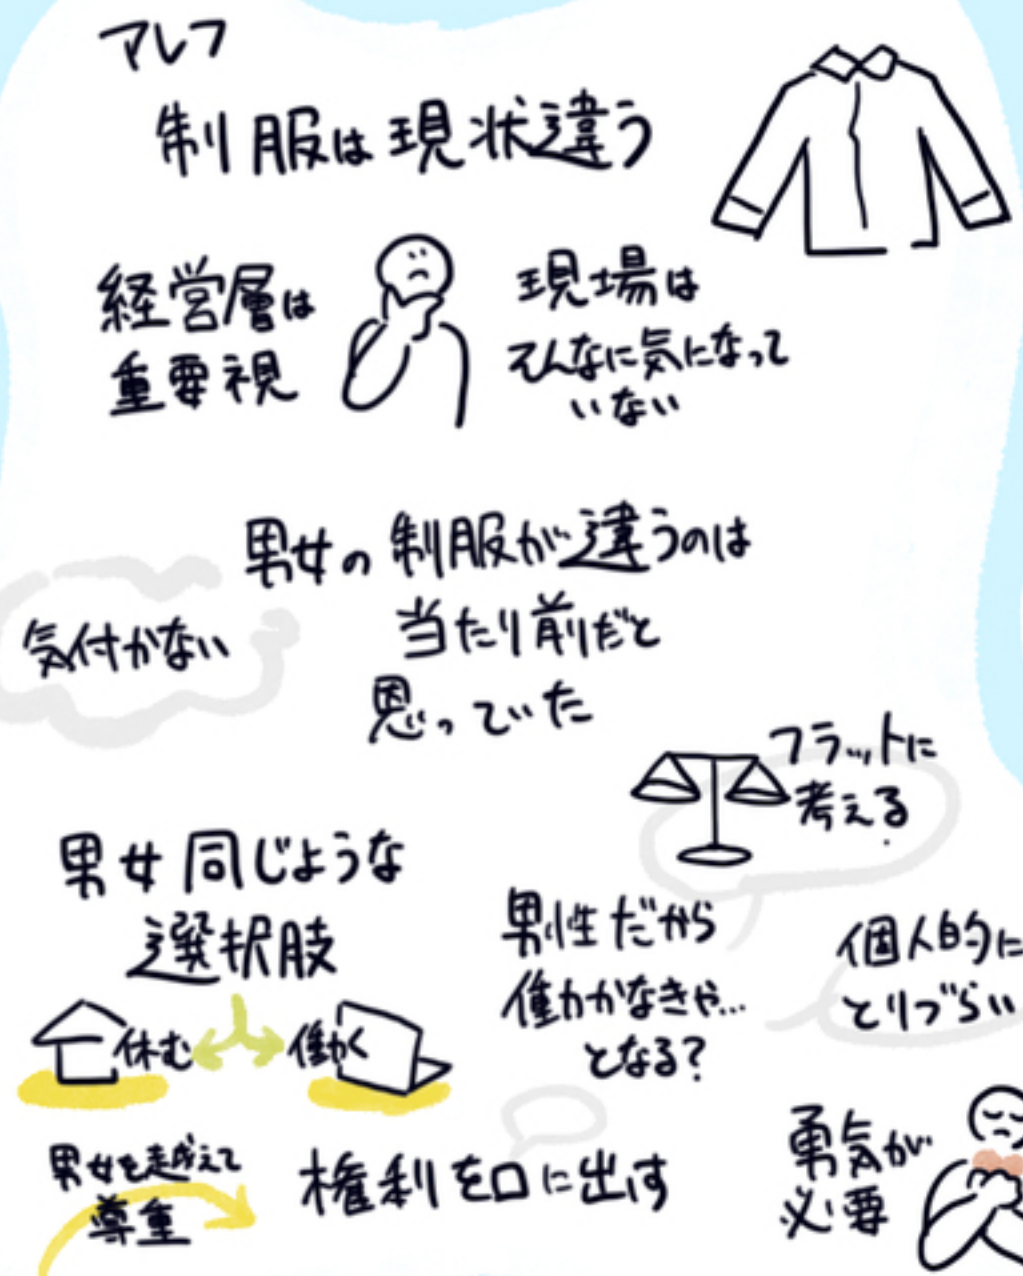 アレフ
制服は現状違う
経営層は
重要視
現場は
そんなに気になって
いない
男女の制服が違うのは
当たり前だと
思っていた
気付かない
フラットに
考える
男女同じような
選択肢
休む
働く
男性だから
働かなきゃ…
となる?
個人的に
とりづらい
男女を越えて
尊重
権利を口に出す
勇気が
必要